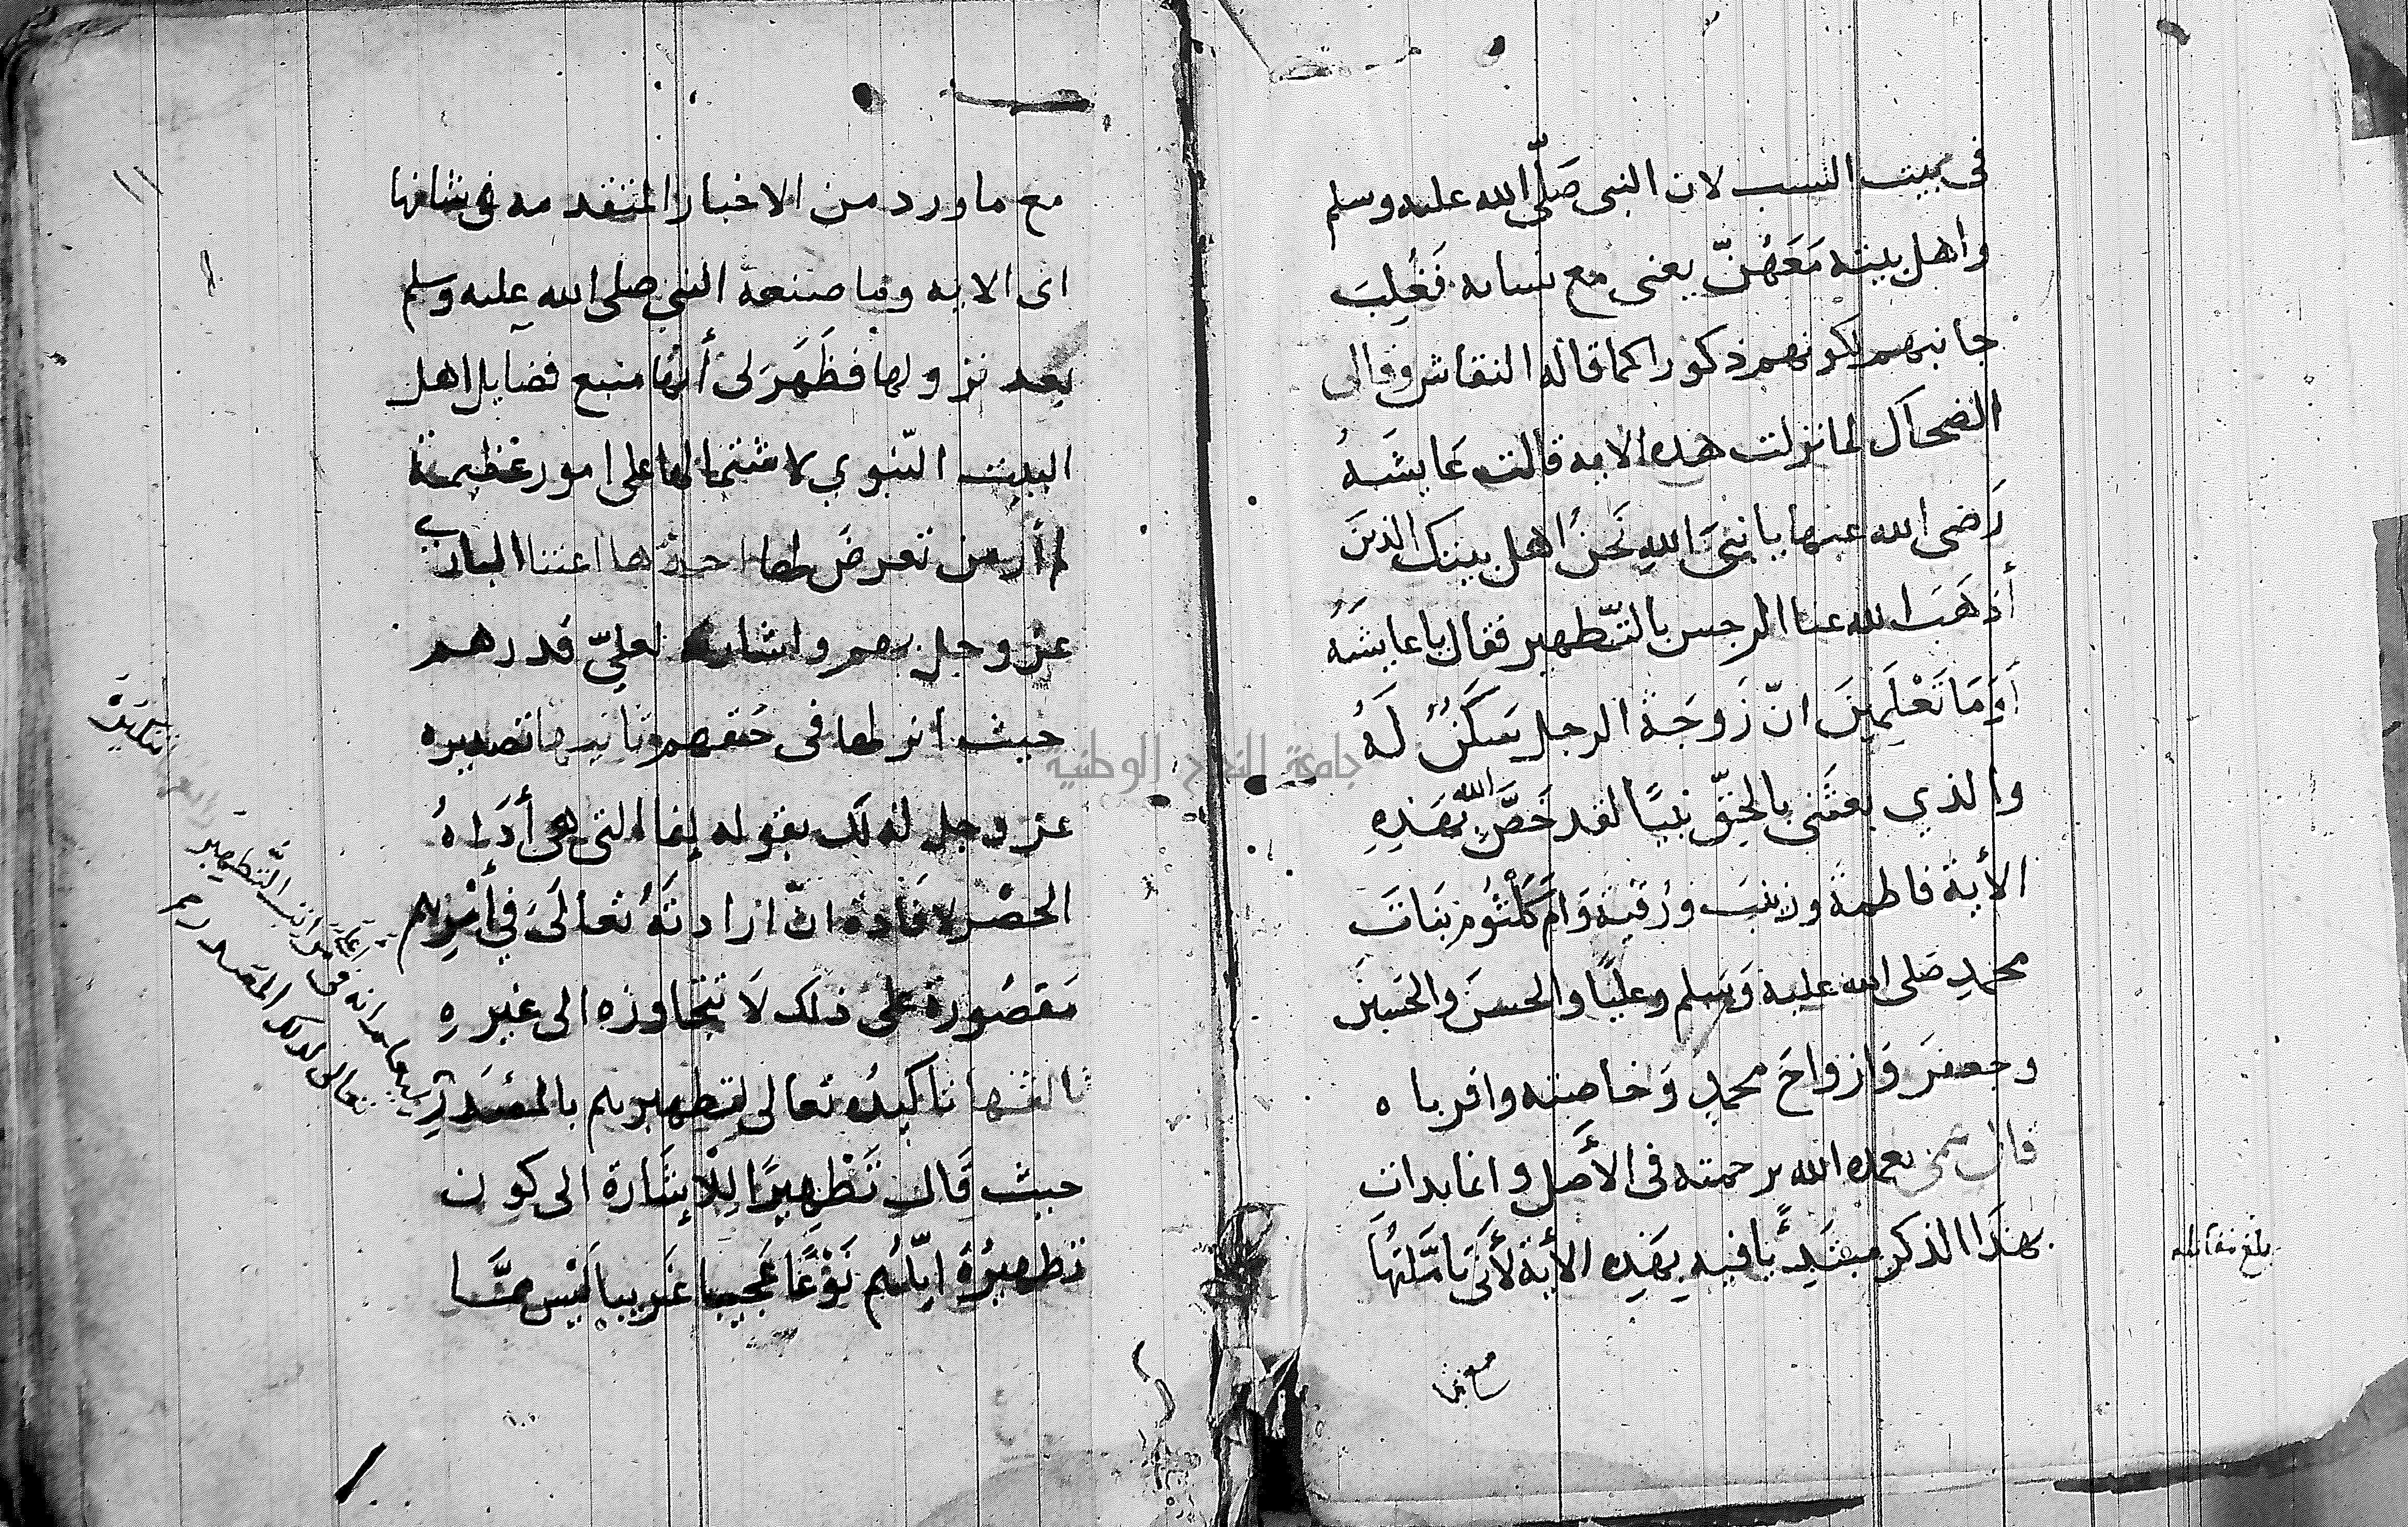 في بيت النسب لان النبى صَلّى الله عليه وسلم
واهل بيته مَعَهُنّ يعنى مع نسايه فَغُلِبَ
جانبهم لكونهم ذكورا كما قاله النقاش وقال
الضحاك لما نزلت هذه الايه قالت عَايشَهُ
رَضى الله عنها يا نبىَ اللهِ نَحنُ اهل بيتك الذينَ
أذهَبَ الله عنا الرجس بالتّطهير فقال يا عايشَهُ
أوَمَا تَعْلَمِينَ انّ زَوجَةَ الرجل سَكَنٌ لَهُ
والذي بعثَنى بالحَقّ نبيًا لقد خَصَّ اللهُ بهَذِهِ
الأية فاطمةَ وزينبَ ورُقيةَ وَامَّ كَلْثُوم بنَاتَ
محمدٍ صَلى الله عليه وَسَلم وعليًا والحسنَ والحُسَين
وجعفرَ وَازواجَ محمدٍ وَخاصته واقرباه
قال عمى تغمده الله برحمته فى الأصل وانما بداتُ
بهذَا الذكر مبتَدِئًا فيه بهَذِه الأية لأَنى تامَّلتُهَا
مع ما
بلغ مقابله
مع ما ورد من الاخبار المتقدمه فى شانها
اى الايه وما صنعه النبي صلى الله عليه وسلم
بعد نزولها فظَهَرَ لى أنهَا منبع فضايل اهل
البيت النّبوي لاشتمالها على امور عظيمة
لم أر من تعرضَ لها احدها اعتنا البارى
عز وجل بهم واشارته لعليّ قدرهم
حيث انزلها فى حَقهم ثانيها تصديره
عز وجل لذلك بقوله إنما التى هى أدَاهُ
الحصْر لافادة انّ ارادتَهُ تعالَى في أمْرِهم
مَقصُورة على ذلك لَا تتجاوزه الى غيرهِ
ثالثها تاكيدُه تعالى لتطهيرهم بالمصْدَرِ
حيث قَال تَطْهِيرًا لِلْإِشَارة الى كون
تطهيرُهُ ايّاهُم نَوْعًا عَجيبا غَريبا لَيْسَ ممَّا
التطهير
تعالى لذلك المصدر